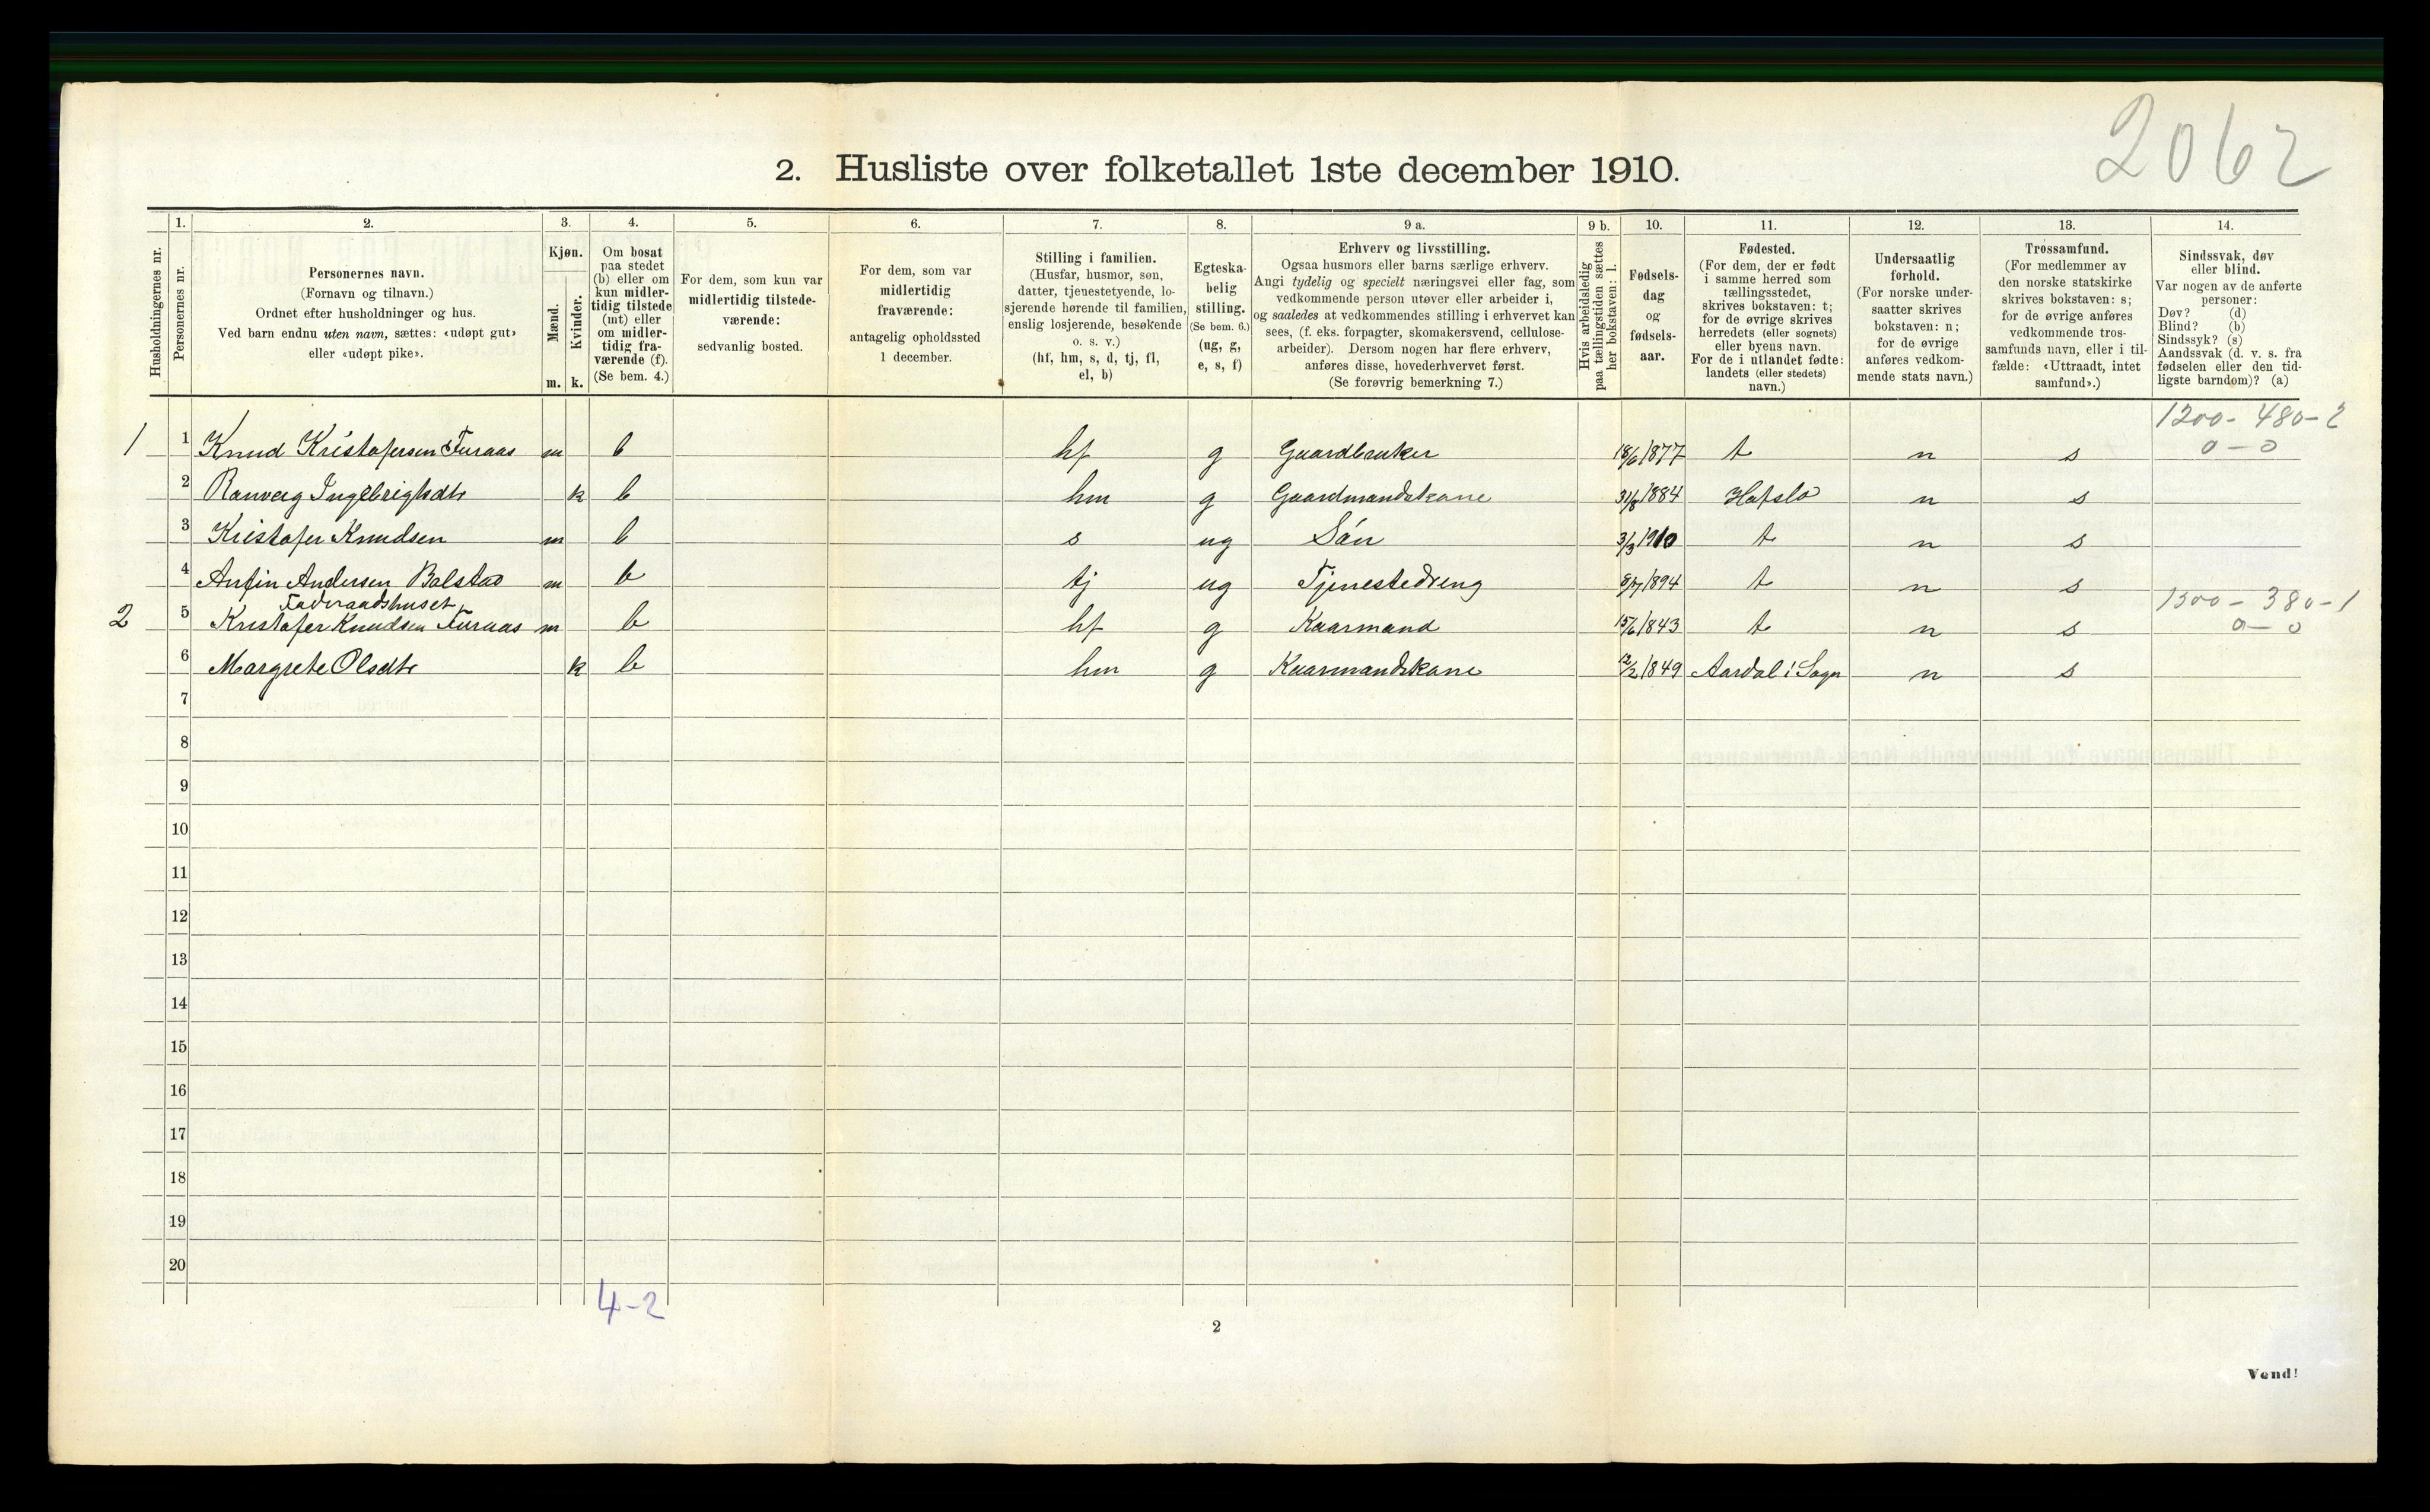 2062
2. Husliste over folketallet 1ste december 1910.
Husholdningernes nr.
1.
Personernes nr.
2.
Personernes navn.
(Fornavn og tilnavn.)
Ordnet efter husholdninger og hus.
Ved barn endnu uten navn, sættes: «udøpt gut»
eller «udøpt pike».
3.
Kjøn.
Mænd.
Kvinder.
m. k.
4.
Om bosat
paa stedet
(b) eller om
kun midler-
tidig tilstede
(mt) eller
om midler-
tidig fra-
værende (f).
(Se bem. 4.)
5.
For dem, som kun var
midlertidig tilstede-
værende:
sedvanlig bosted.
6.
For dem, som var
midlertidig
fraværende:
antagelig opholdssted
1 december.
7.
Stilling i familien.
(Husfar, husmor, søn,
datter, tjenestetyende, lo-
sjerende hørende til familien,
enslig losjerende, besøkende
o. s. v.)
(hf, hm, s, d, tj, fl,
el, b)
8.
Egteska-
belig
stilling.
(Se bem. 6.)
(ug, g,
e, s, f)
9 a.
Erhverv og livsstilling.
Ogsaa husmors eller barns særlige erhverv.
Angi tydelig og specielt næringsvei eller fag, som
vedkommende person utøver eller arbeider i,
og saaledes at vedkommendes stilling i erhvervet kan
sees, (f. eks. forpagter, skomakersvend, cellulose-
arbeider). Dersom nogen har flere erhverv,
anføres disse, hovederhvervet først.
(Se forøvrig bemerkning 7.)
9 b.
Hvis arbeidsledig
paa tællingstiden sættes
her bokstaven: l.
10.
Fødsels-
dag
og
fødsels-
aar.
11.
Fødested.
(For dem, der er født
i samme herred som
tællingsstedet,
skrives bokstaven: t;
for de øvrige skrives
herredets (eller sognets)
eller byens navn.
For de i utlandet fødte:
landets (eller stedets)
navn.)
12.
Undersaatlig
forhold.
(For norske under-
saatter skrives
bokstaven: n;
for de øvrige
anføres vedkom-
mende stats navn.)
13.
Trossamfund.
(For medlemmer av
den norske statskirke
skrives bokstaven: s;
for de øvrige anføres
vedkommende tros-
samfunds navn, eller i til-
fælde: «Uttraadt, intet
samfund».)
14.
Sindssvak, døv
eller blind.
Var nogen av de anførte
personer:
Døv? (d)
Blind? (b)
Sindssyk? (s)
Aandssvak (d. v. s. fra
fødselen eller den tid-
ligste barndom)? (a)
1200 - 480 - 2
0 - 0
1 1 Knud Kristofersen Furaas m b hf g Gaardbruker 18/6 1877 t n s
2 Ranveig Ingebrigtsdtr k b hm g Gaardmandskone 31/8 1884 Hafslo n s
3 Kristofer Knudsen m b s ug Søn 3/3 1910 t n s
4 Anfin Andersen Bolstad m b tj ug Tjenestedreng 8/7 1894 t n s
Føderaadshuset
1300 - 380 - 1
2 5 Kristofer Knudsen Furaas m b hf g Kaarmand 15/6 1843 t n s 0 - 0
6 Margrete Olsdtr k b hm g Kaarmandskone 12/2 1849 Aardal i Sogn n s
7
8
9
10
11
12
13
14
15
16
17
18
19
20
4-2
2
Vend!